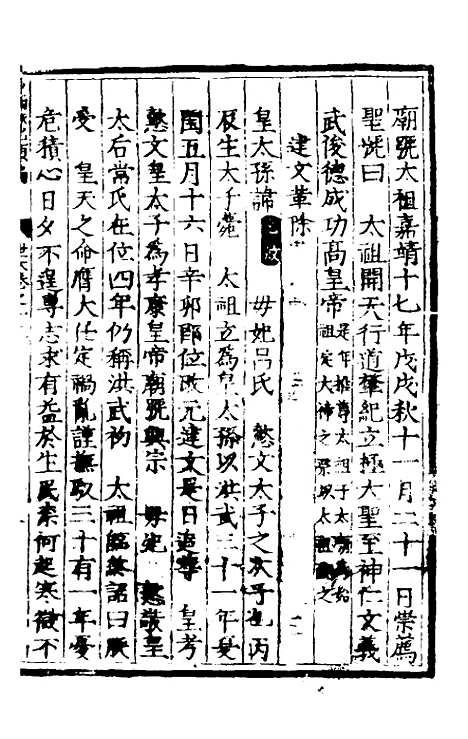 廟號太祖嘉靖十七年戊戌秋十一月二十一日崇薦
聖號曰　太祖開天行道肇紀立極大聖至神仁文義
武俊德成功高皇帝是年推尊太祖子太始祖定大神之祭以太之
建文革除
皇太孫諱　毋妃呂氏　懿文太子之次子也丙
辰生太子薨　太祖立為皇太孫以洪武三十一年夏
閏五月十六日辛卯即位改元建文是日追尊　皇考
懿文皇太子為孝康皇帝廟號興宗　毋妃　懿敬皇
太后常氏在位四年仍稱洪武初　太祖臨終詔曰朕
受　皇天之命膺大任定禍亂謹撫馭三十有一年憂
危積心日夕不遑專志求有益於生民柰何起寒微不